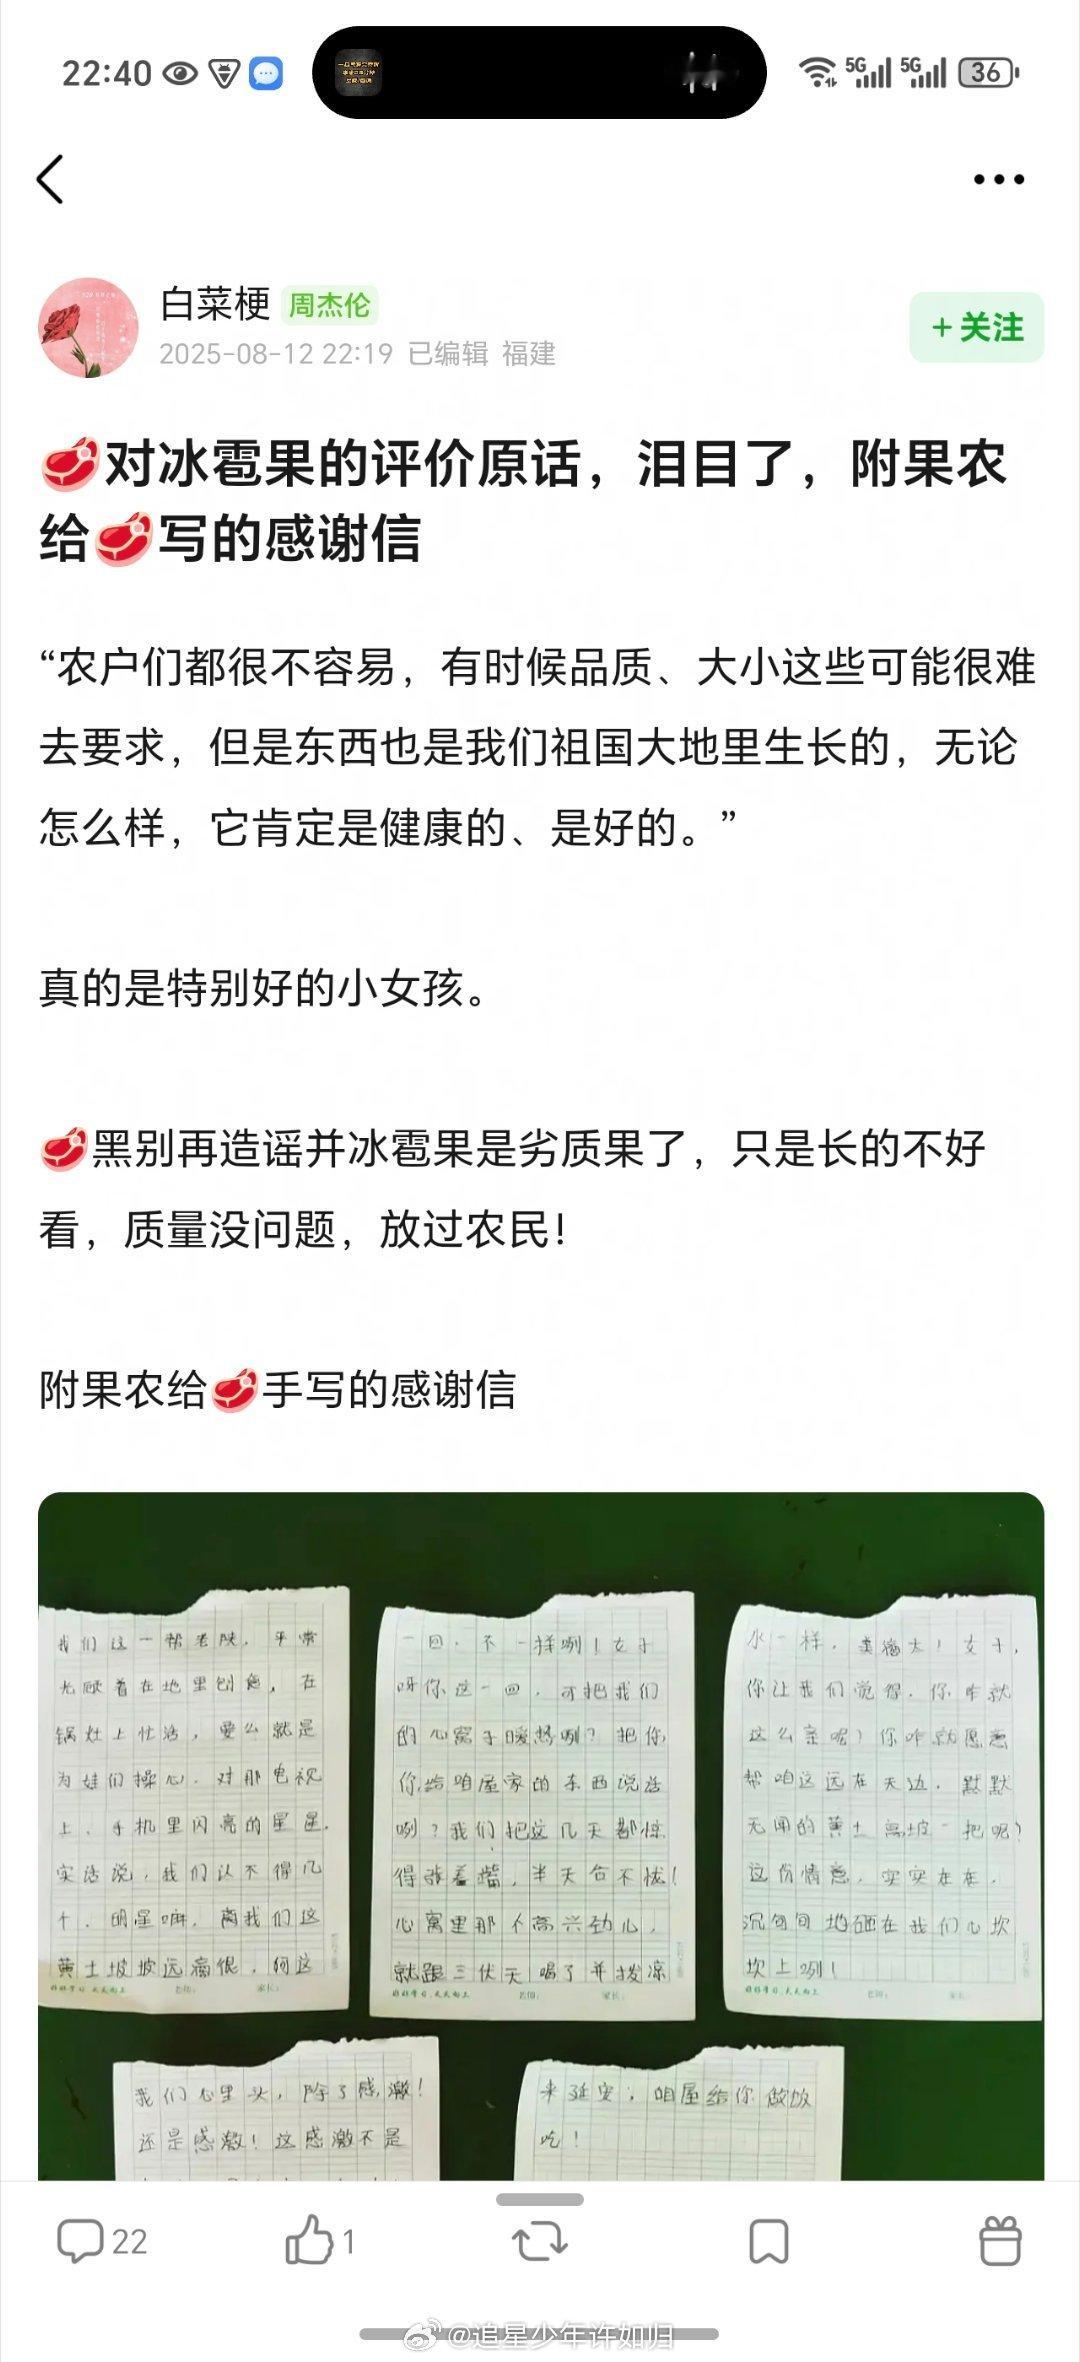 22:40
5G 5G 36
白菜梗 周杰伦
+ 关注
2025-08-12 22:19 已编辑 福建
🥩对冰雹果的评价原话，泪目了，附果农
给🥩写的感谢信
“农户们都很不容易，有时候品质、大小这些可能很难
去要求，但是东西也是我们祖国大地里生长的，无论
怎么样，它肯定是健康的、是好的。”
真的是特别好的小女孩。
🥩黑别再造谣并冰雹果是劣质果了，只是长的不好
看，质量没问题，放过农民！
附果农给🥩手写的感谢信
我们这一帮老陕，平常
光顾着在地里刨食，在
锅灶上忙活，要么就是
为娃们操心．对那电视
上、手机里闪亮的星星．
实话说，我们认不得几
个．明星嘛．离我们这
黄土坡坡远滴很．何这
好好学习．天天向上 老师： 家长：
一回．不一样咧！女子
呀你这一回．可把我们
的心窝子暖热咧？把你，
你给咱屋家的东西说这
咧？我们把这几天都惊
得张着嘴，半天合不拢！
心窝里那个高兴劲儿，
就跟三伏天喝了井拨凉
好好学习．天天向上 老师： 家长：
水一样．美滴太！女子，
你让我们觉得．你咋就
这么亲呢？你咋就愿意
帮咱这远在天边．默默
无闻的黄土高坡一把呢？
这份情意．实实在在．
沉甸甸地砸在我们心坎
坎上咧！
好好学习．天天向上 老师： 家长：
我们心里头，除了感激！
还是感激！这感激不是
来延安；咱屋给你做饭
吃！
22 1
@追星少年许如归